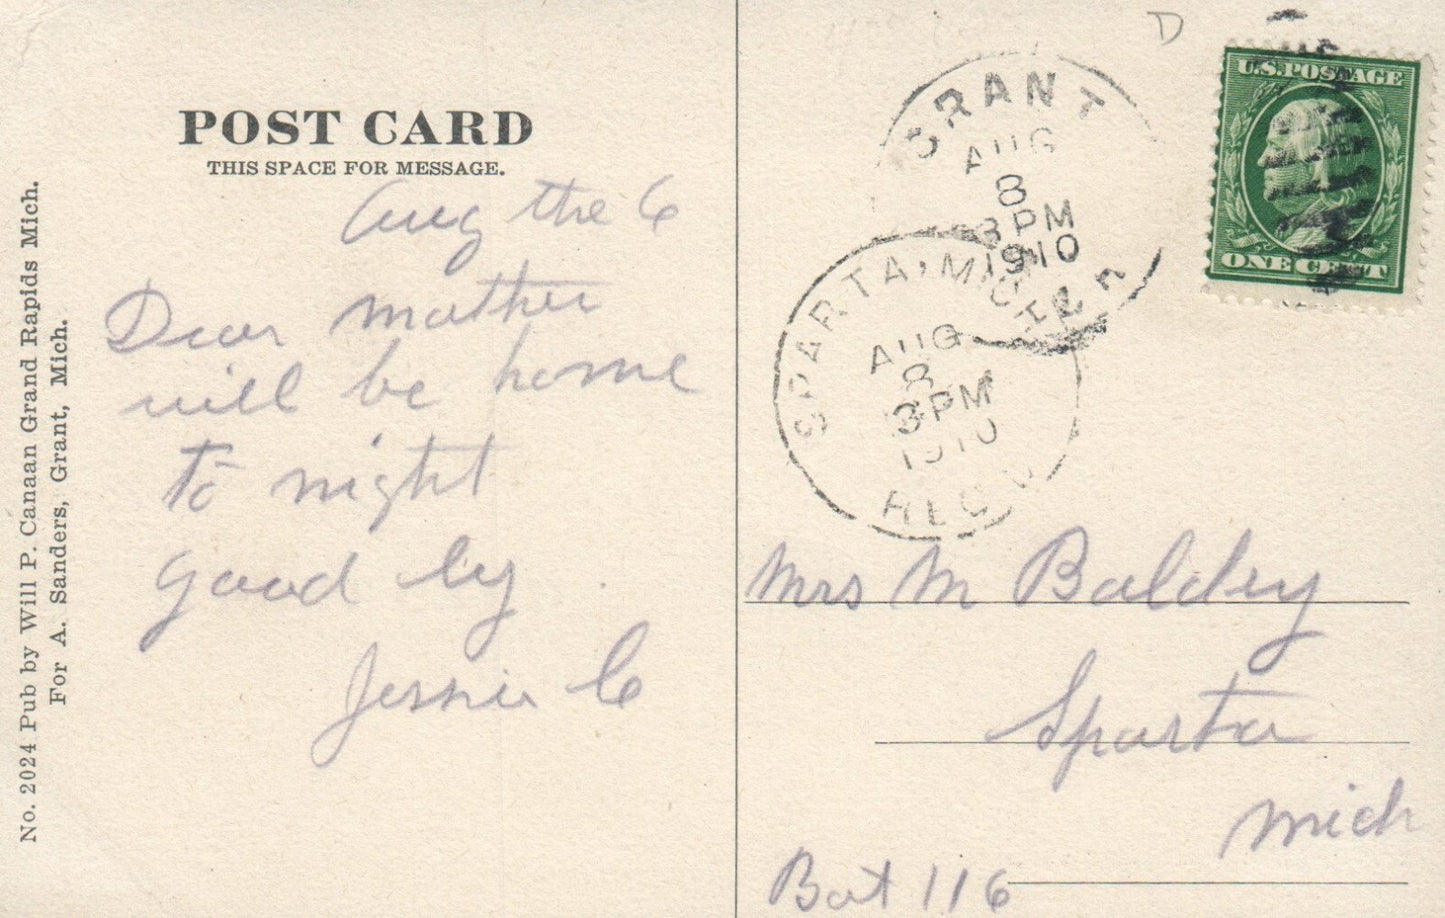 POST CARD
THIS SPACE FOR MESSAGE.
Aug the 6
Dear mother
will be home
to night
good by
Jessie C
No. 2024 Pub by Will P. Canaan Grand Rapids Mich.
For A. Sanders, Grant, Mich.
D
U.S. POSTAGE
ONE CENT
GRANT
AUG
8
3 PM
1910
MICH
SPARTA, MICH
AUG
8
3 PM
1910
REC'D
Mrs M Baldry
Sparta
Mich
Bat 116